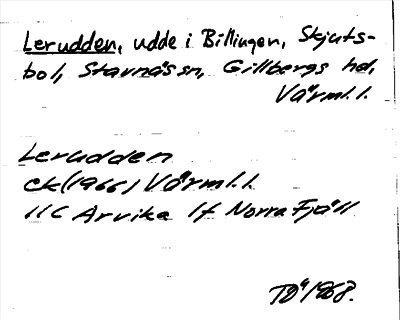 Lerudden, udde i Billingen, Skjuts-
bol, Stavnäs sn, Gillbergs hd,
Värml. l.
Lerudden
ek (1966) Värml. l.
11C Arvika 1f Norra Fjäll
TD 1968.